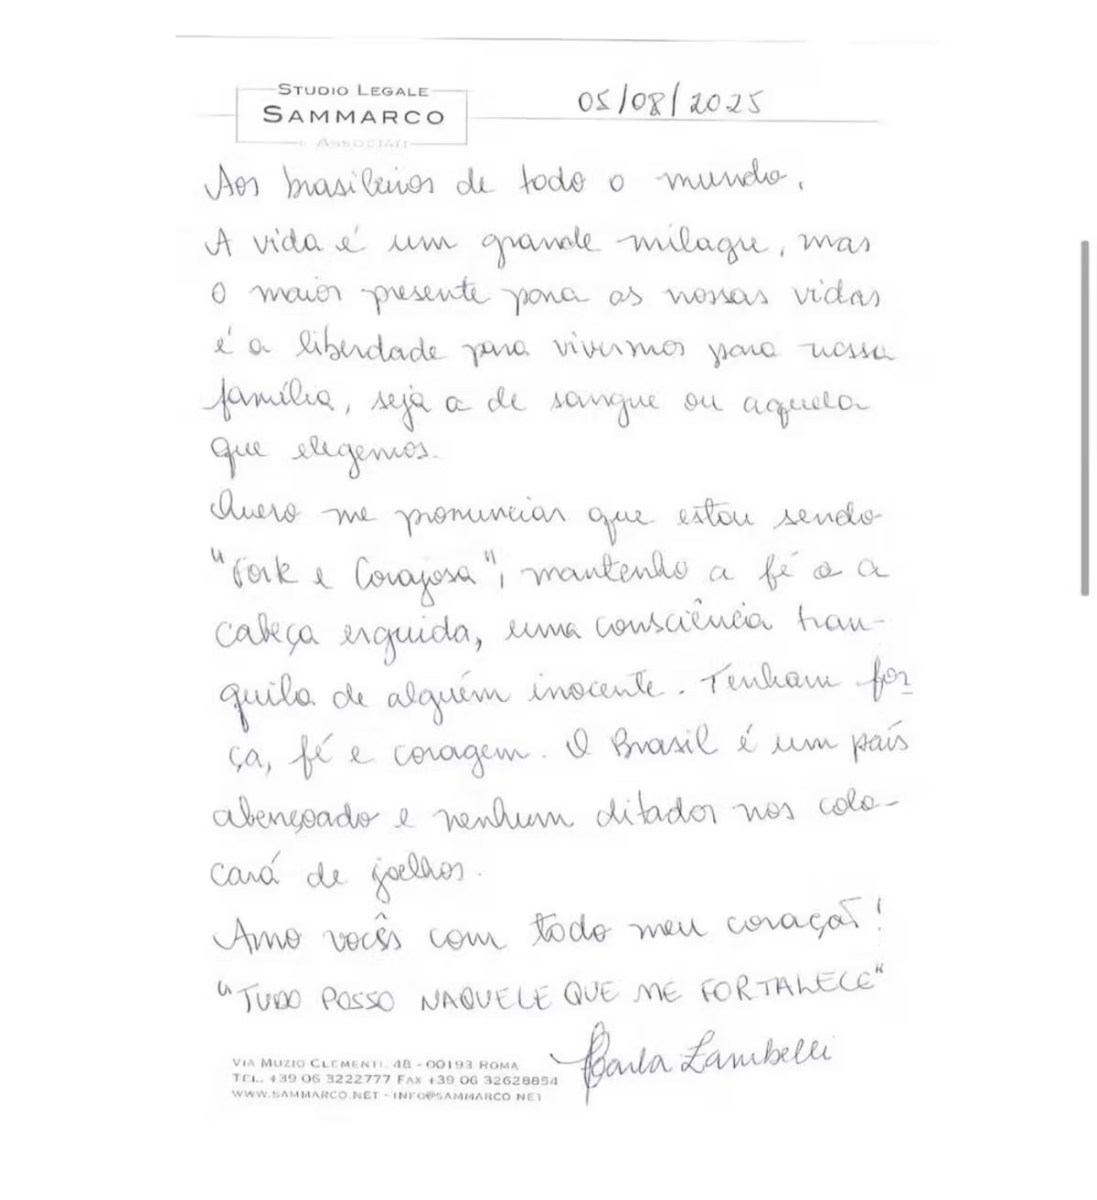 STUDIO LEGALE
SAMMARCO
E ASSOCIATI
05/08/2025
Aos brasileiros de todo o mundo,
A vida é um grande milagre, mas
o maior presente para as nossas vidas
é a liberdade para vivermos para nossa
família, seja a de sangue ou aquela
que elegemos.
Quero me pronunciar que estou sendo
"Forte e Corajosa", mantenho a fé e a
cabeça erguida, uma consciência tran-
quila de alguém inocente. Tenham for-
ça, fé e coragem. O Brasil é um país
abençoado e nenhum ditador nos colo-
cará de joelhos.
Amo vocês com todo meu coração!
"TUDO POSSO NAQUELE QUE ME FORTALECE"
Carla Zambelli
VIA MUZIO CLEMENTI, 48 - 00193 ROMA
TEL. +39 06 3222777 FAX +39 06 32628854
WWW.SAMMARCO.NET - INFO@SAMMARCO.NET